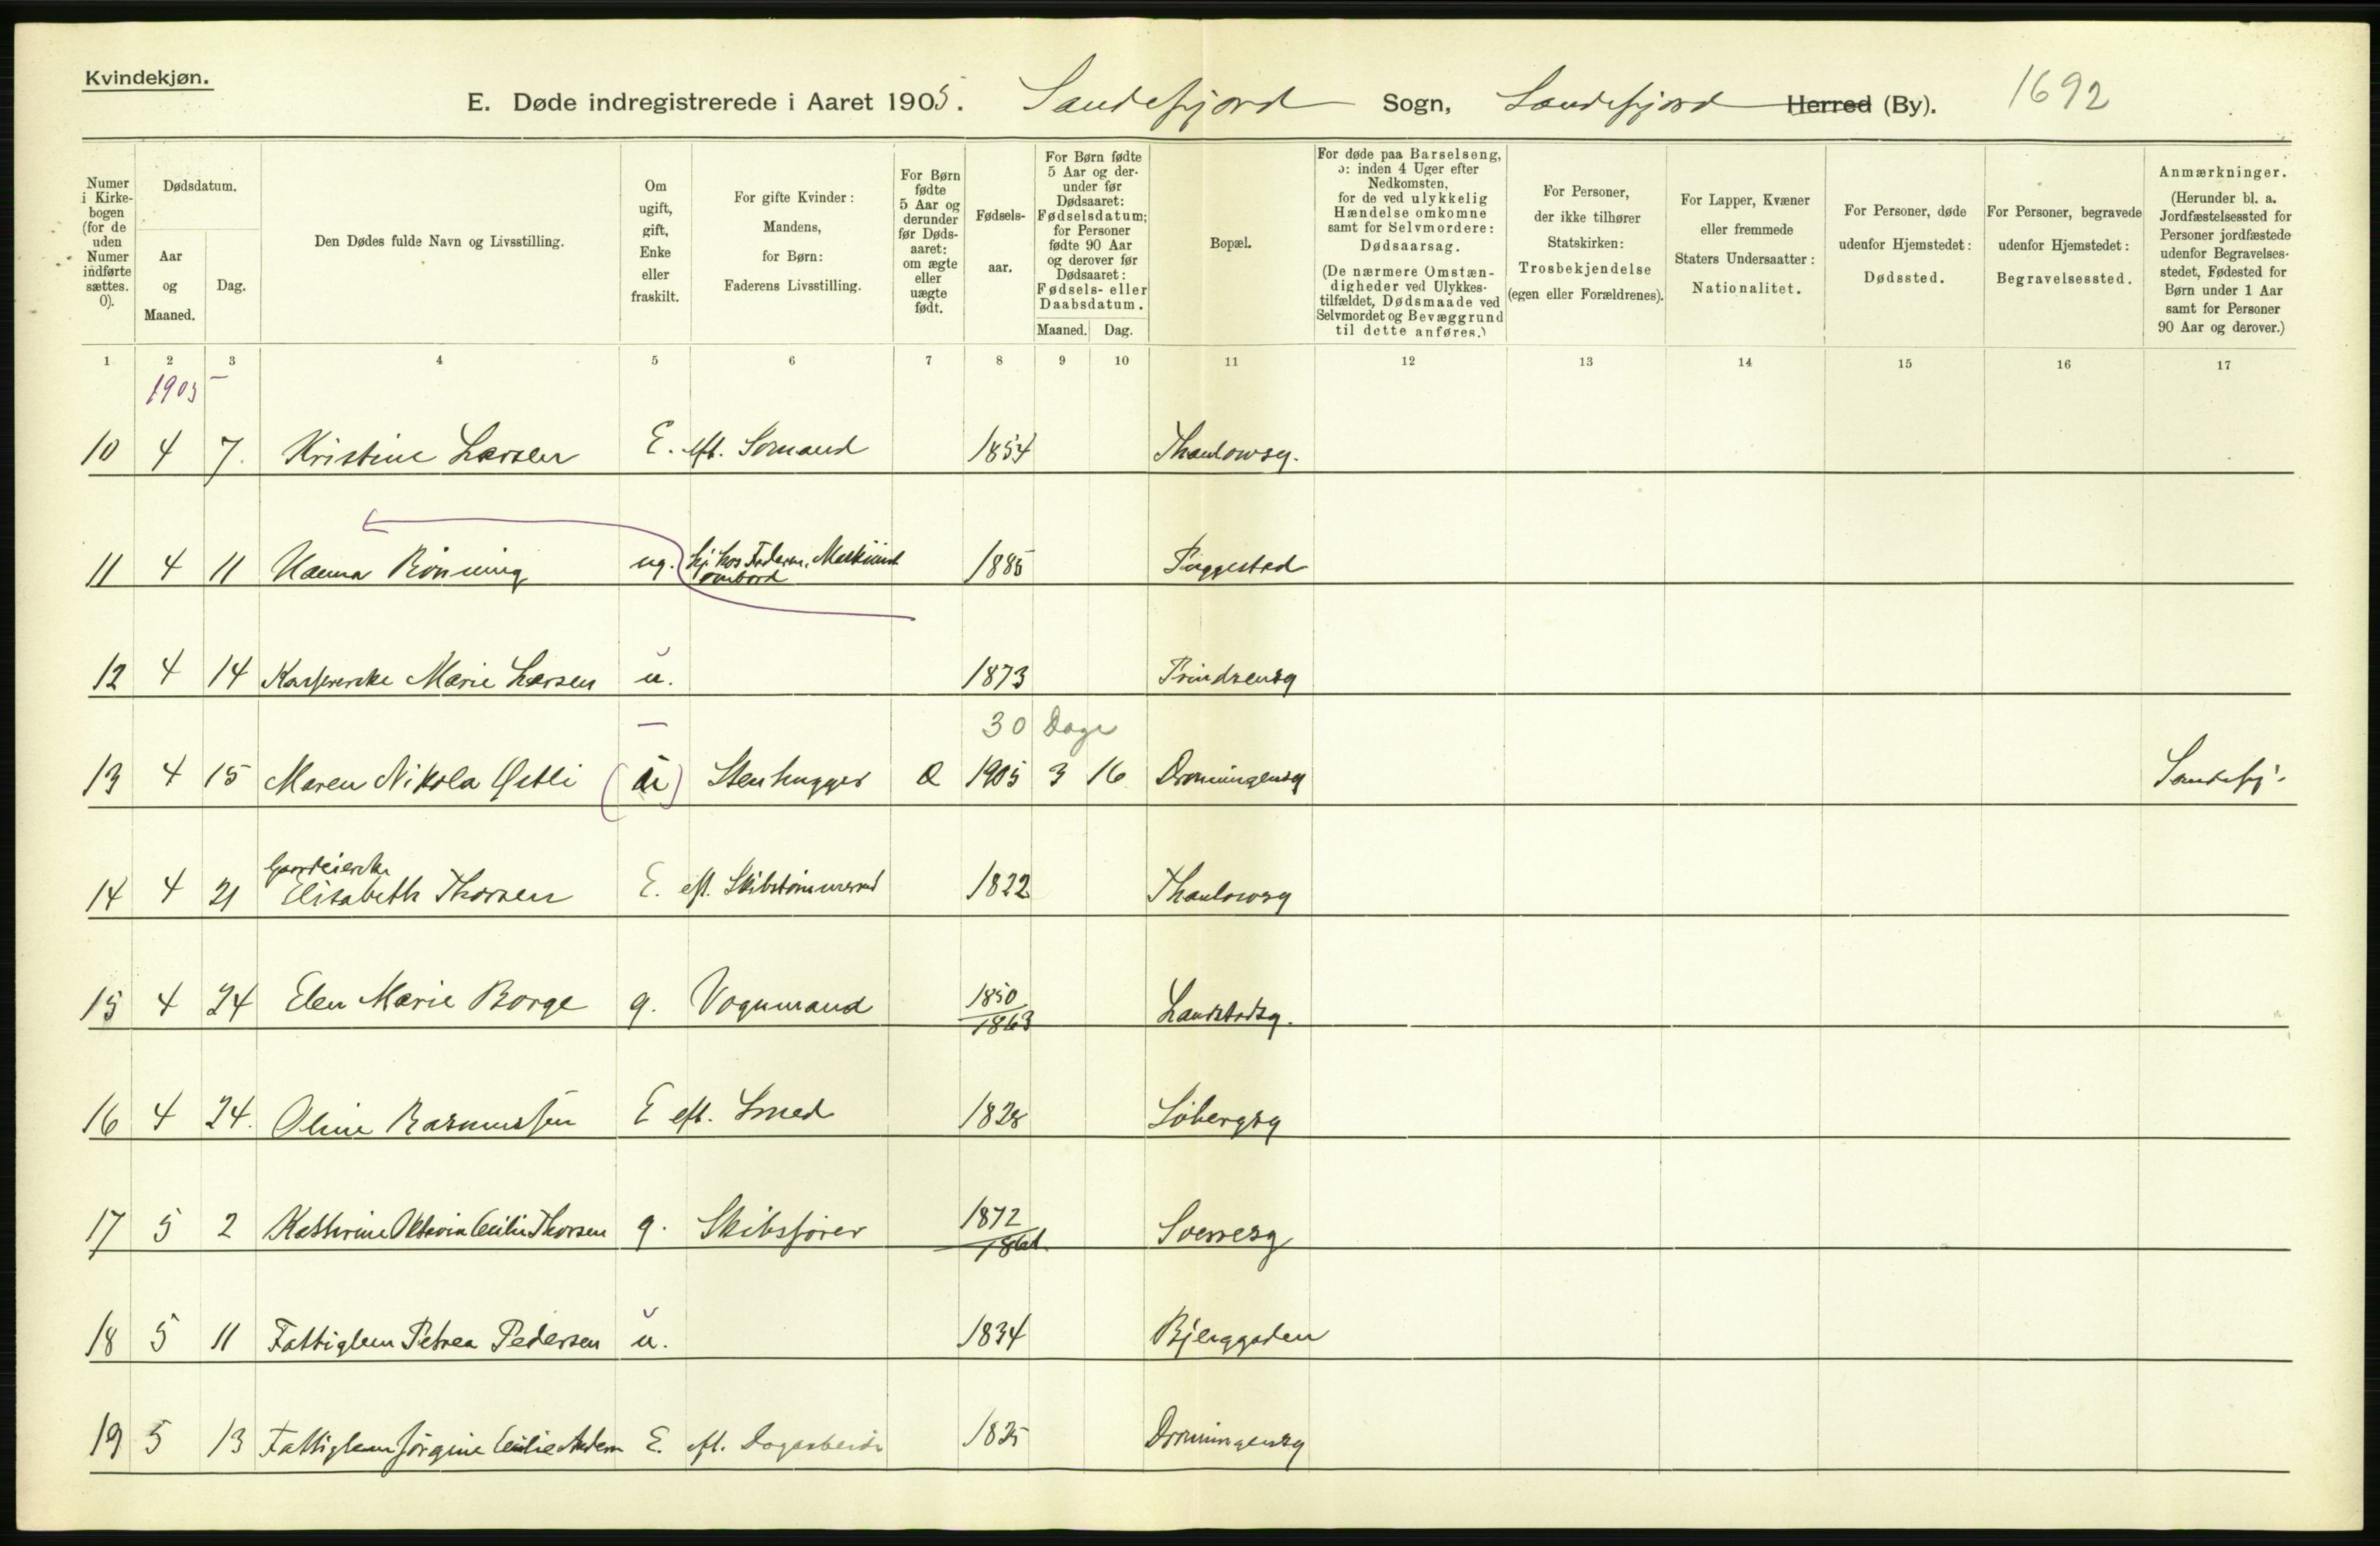 Kvindekjøn.
E. Døde indregistrerede i Aaret 1905. Sandefjord Sogn, Sandefjord Herred (By). 1692
Numer i Kirkebogen (for de uden Numer indførte sættes. 0).
Dødsdatum.
Aar og Maaned.
Dag.
Den Dødes fulde Navn og Livsstilling.
Om ugift, gift, Enke eller fraskilt.
For gifte Kvinder: Mandens, for Børn: Faderens Livsstilling.
For Børn fødte 5 Aar og derunder før Dødsaaret: om ægte eller uægte født.
Fødselsaar.
For Børn fødte 5 Aar og derunder før Dødsaaret: Fødselsdatum; for Personer fødte 90 Aar og derover før Dødsaaret: Fødsels- eller Daabsdatum.
Maaned. Dag.
Bopæl.
For døde paa Barselseng, ɔ: inden 4 Uger efter Nedkomsten, for de ved ulykkelig Hændelse omkomne samt for Selvmordere: Dødsaarsag. (De nærmere Omstændigheder ved Ulykkestilfældet, Dødsmaade ved Selvmordet og Bevæggrund til dette anføres.)
For Personer, der ikke tilhører Statskirken: Trosbekjendelse (egen eller Forældrenes).
For Lapper, Kvæner eller fremmede Staters Undersaatter: Nationalitet.
For Personer, døde udenfor Hjemstedet: Dødssted.
For Personer, begravede udenfor Hjemstedet: Begravelsessted.
Anmærkninger. (Herunder bl. a. Jordfæstelsessted for Personer jordfæstede udenfor Begravelsesstedet, Fødested for Børn under 1 Aar samt for Personer 90 Aar og derover.)
1 2 3 4 5 6 7 8 9 10 11 12 13 14 15 16 17
1905
10 4 7. Kristine Larsen E. eft. Sømand 1854 Thaulowsg.
11 4 11 Hanna Rønning ug. hj. hos Faderen, Maskinist ombord 1885 Puggestad
12 4 14 Marie Larsen u. 1873 Prindsensg
30 Dage
13 4 15 Maren Nikola Østli (u) Stenhugger 1905 3 16 Dronningensg Sandefj.
14 4 21 Gaardeierske Elisabeth Thorsen E. eft. Skibstømmermd 1822 Thaulowsg
15 4 24 Elen Marie Borge g. Vognmand 1850 1863 Landstadsg.
16 4 24. Oline Rasmussen E eft. Smed 1828 Løbergsg
17 5 2 Kathrine Oktavia Cecilie Thorsen g. Skibsfører 1872 Sverresg
18 5 11 Fattiglem Petrea Pedersen u. 1834 Bjerggaden
19 5 13 Fattiglem Jørgine Cecilie E. eft. Dagarbeider 1825 Dronningensg